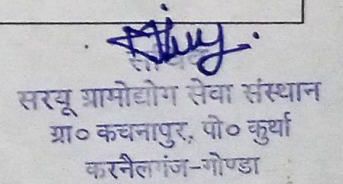 सचिव
सरयू ग्रामोद्योग सेवा संस्थान
ग्रा० कचनापुर, पो० कुर्था
करनैलगंज-गोण्डा